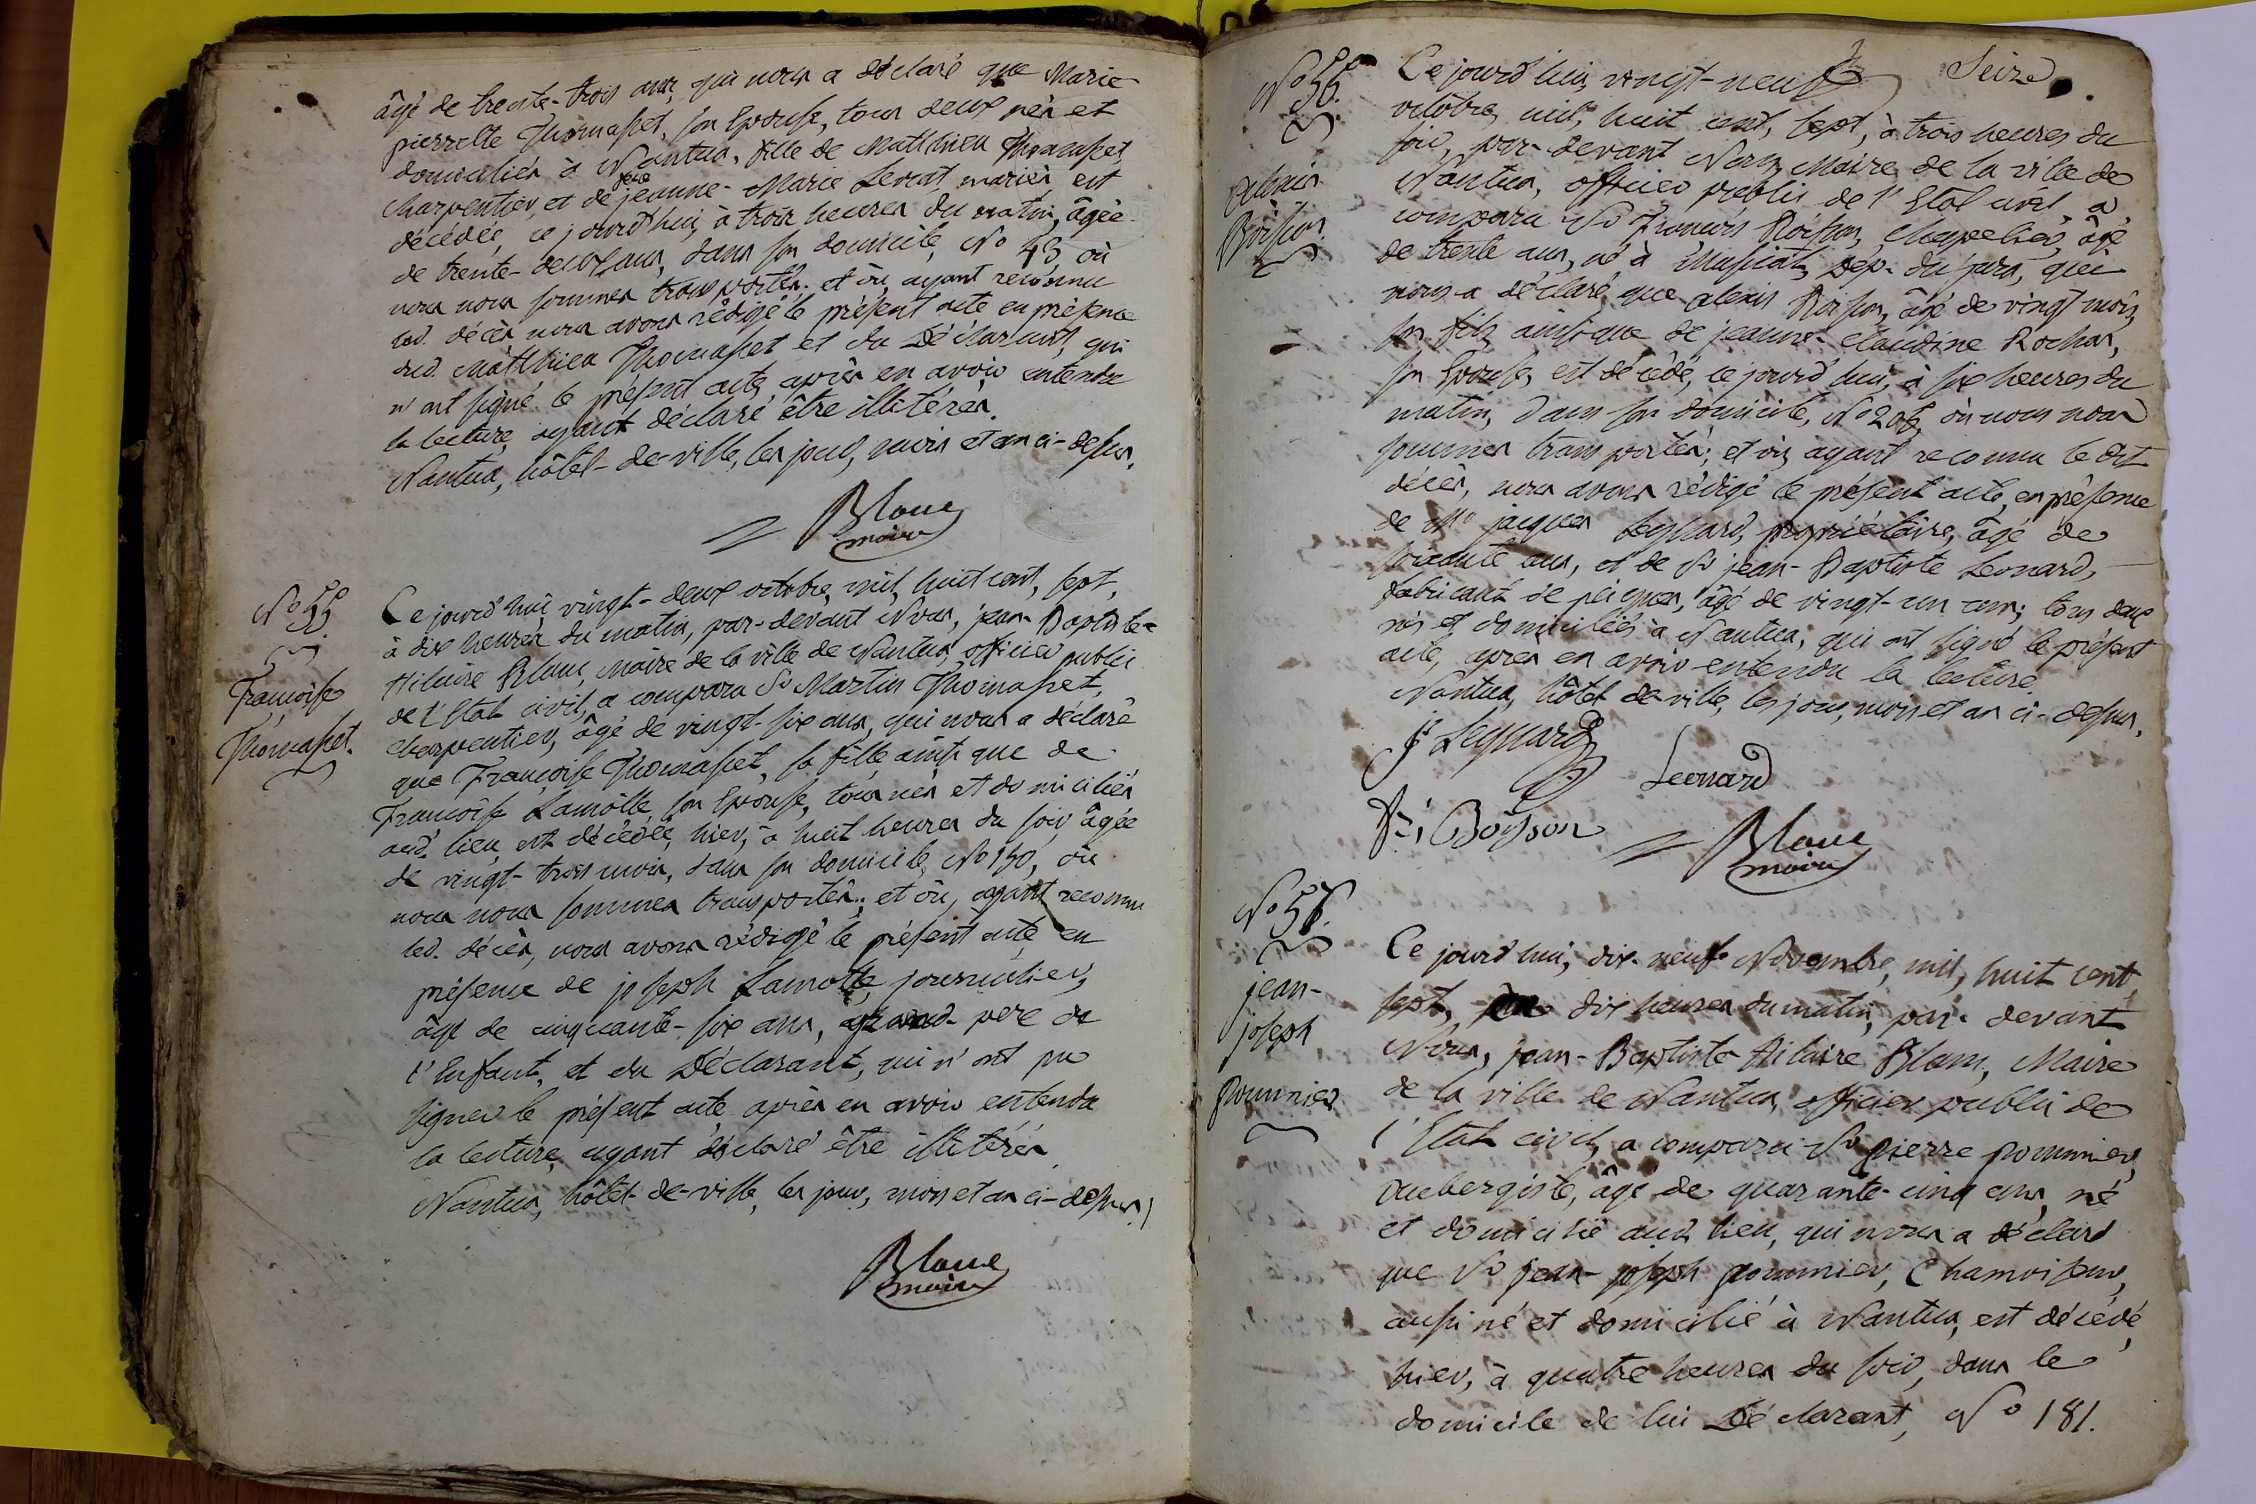 âgé de trente-trois ans, qui nous a déclaré que Marie
pierrette Thomasset, son Epouse, tous deux nés et
domiciliés à Nantua, fille de Matthieu Thomasset,
charpentier, et de jeanne-Marie Levrat, mariés, est
décédée, ce jourd'hui, à trois heures du matin, âgée
de trente-deux ans, dans son domicile, No 43, où
nous nous sommes transportés; et où, ayant reconnu
led. décès, nous avons rédigé le présent acte en présence
dud. Matthieu Thomasset et du Déclarant, qui
n'ont signé le présent acte, après en avoir entendu
la lecture, ayant déclaré être illitérés.
Nantua, hôtel-de-ville, les jour, mois et an ci-dessus.
Blanc
maire
No 55.
Françoise
Thomasset.
Ce jourd'hui vingt-deux octobre, mil, huit cent, sept,
à dix heures du matin, par-devant Nous, jean-Baptiste-
Hilaire Blanc, Maire de la ville de Nantua, officier public
de l'Etat civil, a comparu Sr Martin Thomasset,
charpentier, âgé de vingt-six ans, qui nous a déclaré
que Françoise Thomasset, sa fille ainsi que de
Françoise Lamotte, son Epouse, tous nés et domiciliés
aud. lieu, est décédée, hier, à huit heures du soir, âgée
de vingt-trois mois, dans son domicile, No 150, où
nous nous sommes transportés; et où, ayant reconnu
led. décès, nous avons rédigé le présent acte en
présence de joseph Lamotte, journalier,
âgé de cinquante-six ans, grand-père de
l'Enfant, et du Déclarant, qui n'ont pu
signer le présent acte, après en avoir entendu
la lecture, ayant déclaré être illitérés.
Nantua, hôtel-de-ville, les jour, mois et an ci-dessus.
Blanc
maire
Seize.
No 56.
alexis
Boisson.
Ce jourd'hui, vingt-neuf
octobre, mil, huit cent, sept, à trois heures du
soir, par-devant Nous, Maire de la ville de
Nantua, officier public de l'Etat civil, a
comparu Sr François Boisson, Chapelier, âgé
de trente ans, né à Dép. du jura, qui
nous a déclaré que alexis Boisson, âgé de vingt mois,
son fils, ainsi que de jeanne-Claudine Rochas,
son Epouse, est décédé, ce jourd'hui, à six heures du
matin, dans son domicile, No où nous nous
sommes transportés; et où, ayant reconnu le dit
décès, nous avons rédigé le présent acte, en présence
de Mr jacques propriétaire, âgé de
ans, et de Sr jean-Baptiste Leonard,
fabricant de peignes, âgé de vingt-un ans; tous deux
nés et domiciliés à Nantua; qui ont signé le présent
acte, après en avoir entendu la lecture.
Nantua, hôtel-de-ville, les jour, mois et an ci-dessus.
Leonard
Boisson
Blanc
maire
No 57.
jean-
joseph
pommier
Ce jourd'hui, dix-neuf Novembre, mil, huit cent,
sept, dix heures du matin, par-devant
Nous, jean-Baptiste Hilaire Blanc, Maire
de la ville de Nantua, officier public de
l'Etat civil, a comparu Sr pierre pommier,
aubergiste, âgé de quarante-cinq ans, né
et domicilié aud. lieu, qui nous a déclaré
que Sr jean-joseph pommier, Chamoiseur,
aussi né et domicilié à Nantua, est décédé,
hier, à quatre heures du soir, dans le
domicile de lui Déclarant, No 181.